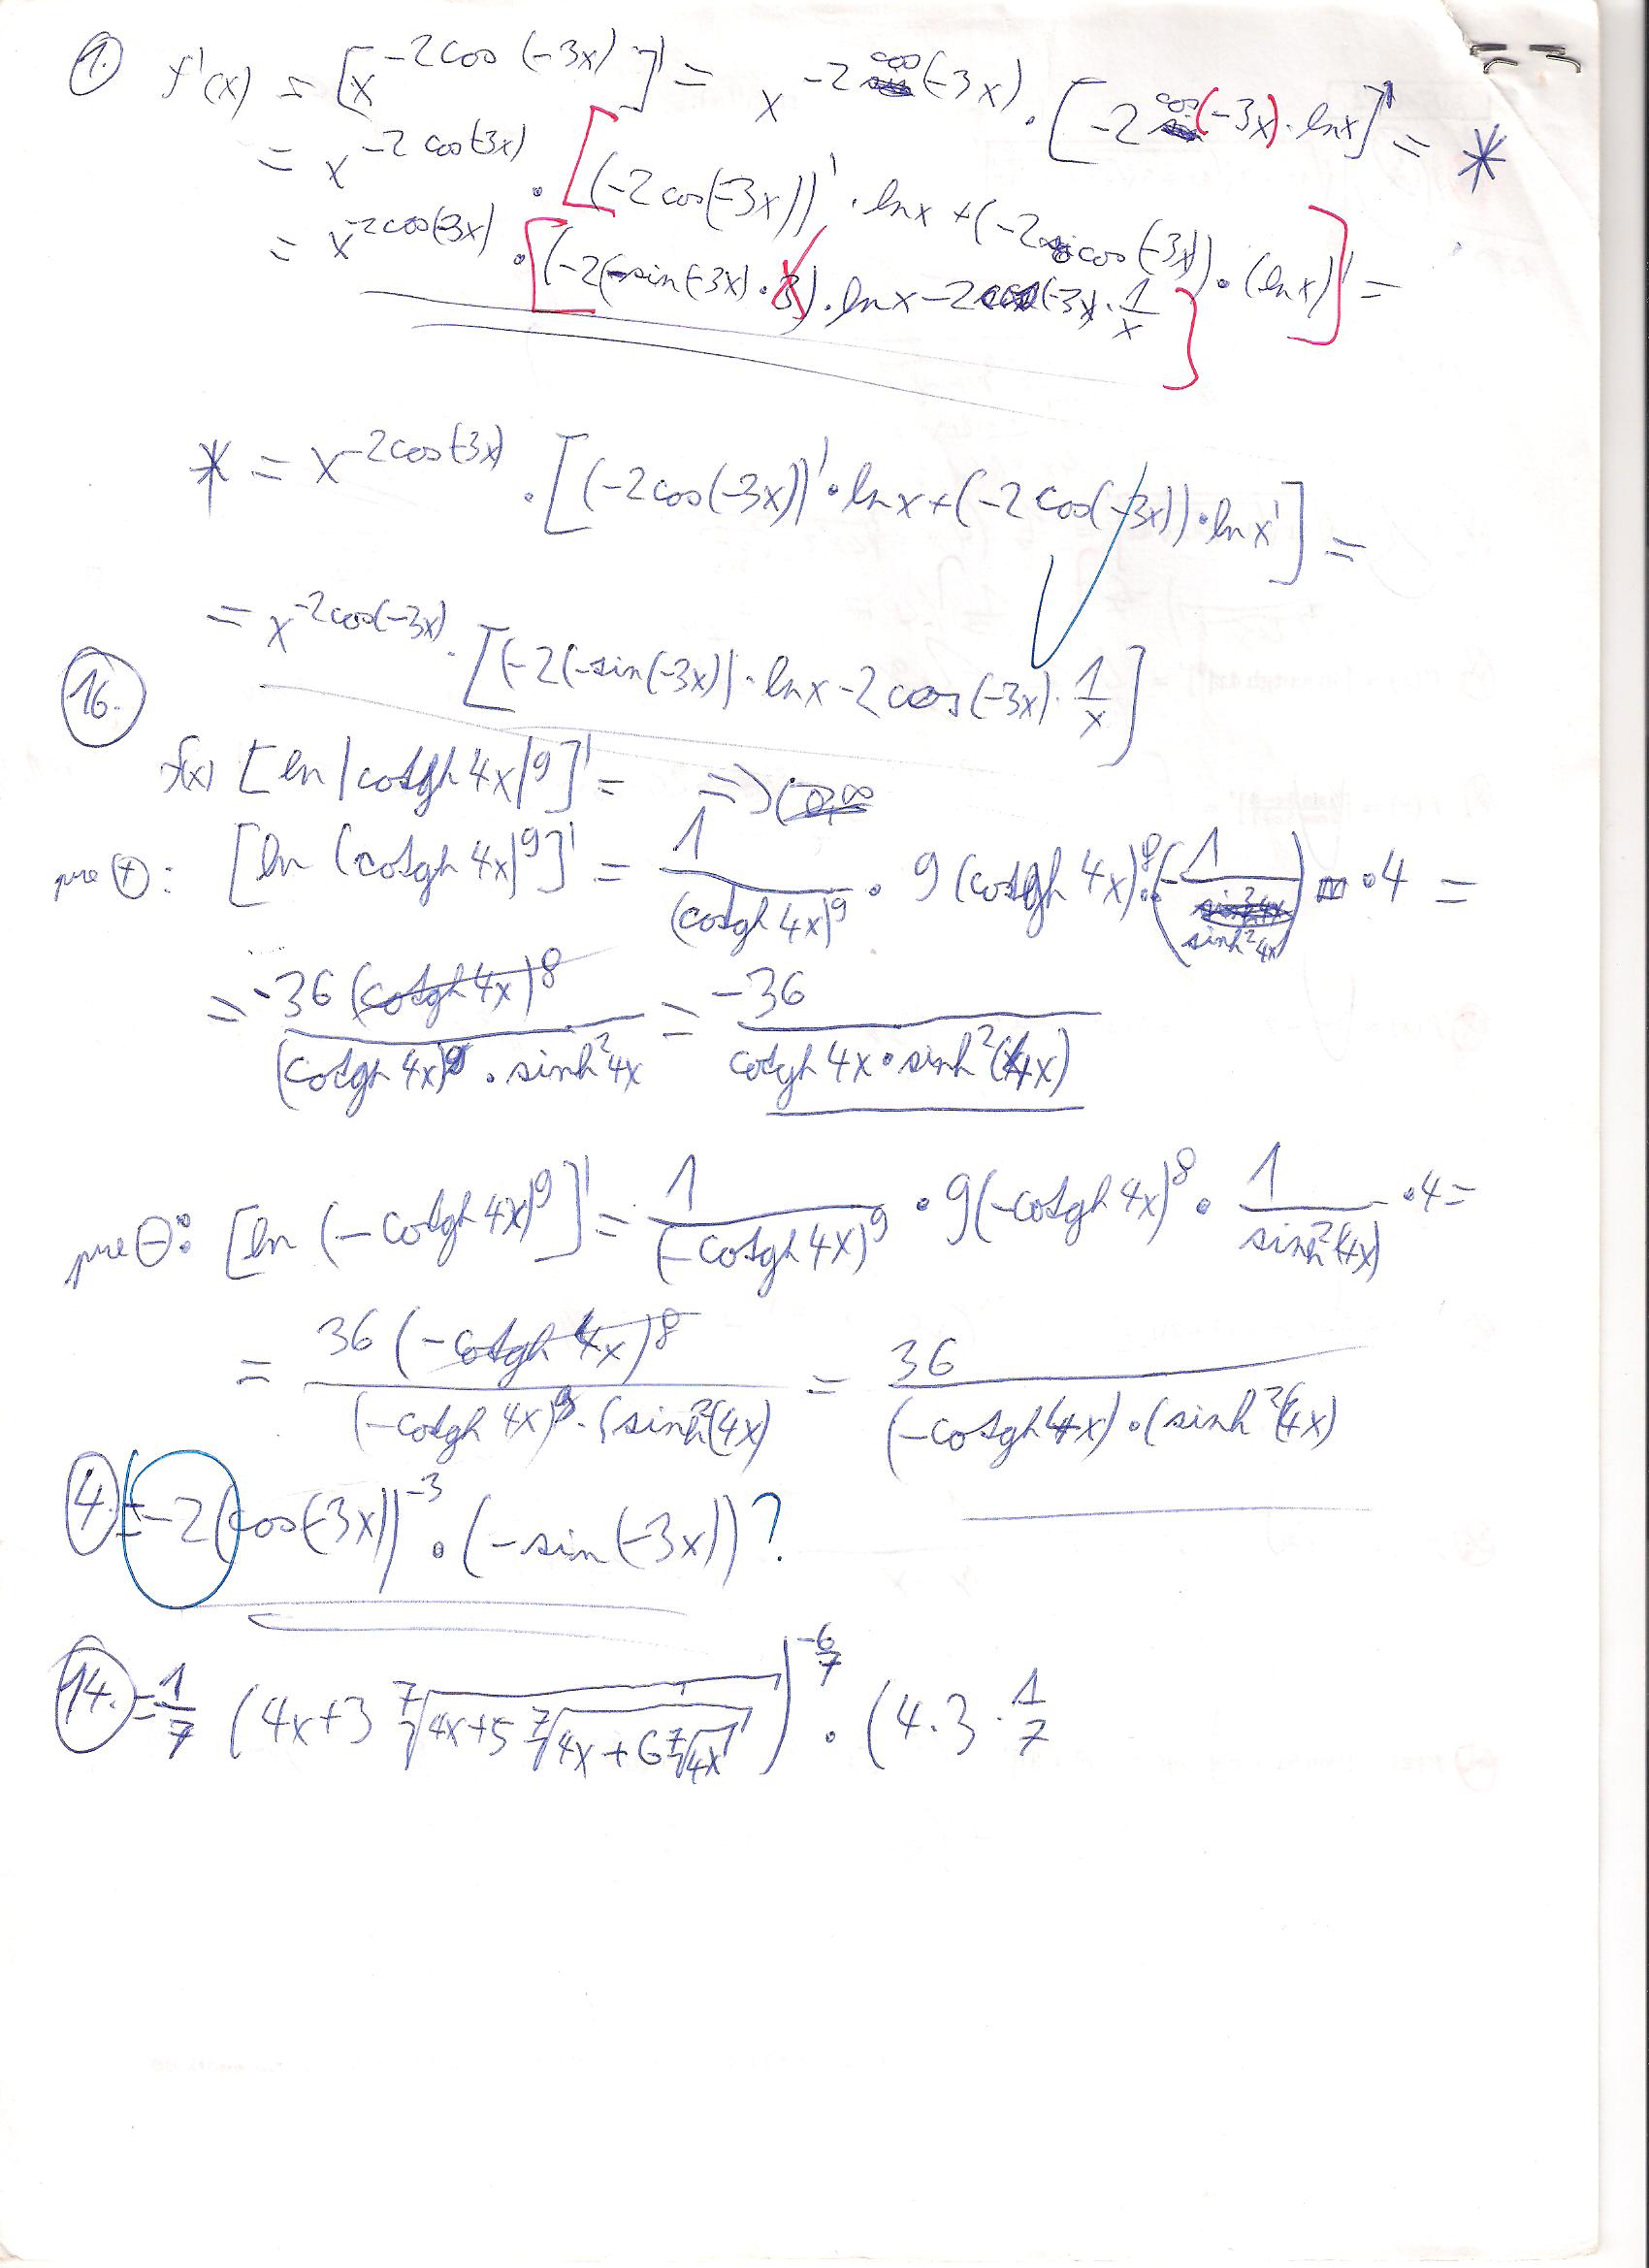 1. f'(x) = [x^{-2cos(-3x)}]' = x^{-2cos(-3x)} · [-2cos(-3x)·lnx]' = *
= x^{-2cos(-3x)} · [(-2cos(-3x))' · lnx + (-2cos(-3x)) · (lnx)'] =
= x^{-2cos(-3x)} · [(-2(-sin(-3x)·3)·lnx - 2cos(-3x)·\frac{1}{x}]
* = x^{-2cos(-3x)} · [(-2cos(-3x))' · lnx + (-2cos(-3x)) · lnx'] =
= x^{-2cos(-3x)} · [(-2(-sin(-3x))·lnx - 2cos(-3x)·\frac{1}{x}]
16.
f(x) [ln|cotgh 4x|^9]' = =>
pre ⊕: [ln (cotgh 4x)^9]' = \frac{1}{(cotgh 4x)^9} · 9(cotgh 4x)^8 · (-\frac{1}{sinh^2 4x}) · 4 =
= \frac{-36(cotgh 4x)^8}{(cotgh 4x)^9 · sinh^2 4x} = \frac{-36}{cotgh 4x · sinh^2(4x)}
pre ⊖: [ln (-cotgh 4x)^9]' = \frac{1}{(-cotgh 4x)^9} · 9(-cotgh 4x)^8 · \frac{1}{sinh^2(4x)} · 4 =
= \frac{36(-cotgh 4x)^8}{(-cotgh 4x)^9 · (sinh^2(4x)} = \frac{36}{(-cotgh 4x) · (sinh^2(4x)}
4. = -2(cos(-3x))^{-3} · (-sin(-3x))?
14. = \frac{1}{7} (4x+3 \sqrt[7]{4x+5 \sqrt[7]{4x+6 \sqrt[7]{4x}}})^{-\frac{6}{7}} · (4·3·\frac{1}{7}